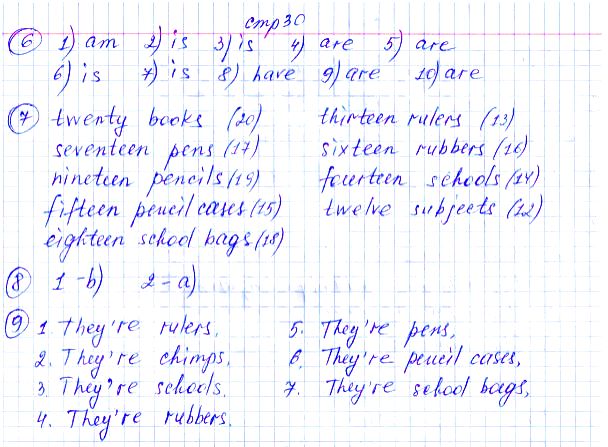 стр 30
6 1) am 2) is 3) is 4) are 5) are
6) is 7) is 8) have 9) are 10) are
7 twenty books (20) thirteen rulers (13)
seventeen pens (17) sixteen rubbers (16)
nineteen pencils (19) fourteen schools (14)
fifteen pencil cases (15) twelve subjects (12)
eighteen school bags (18)
8 1 - b) 2 - a)
9 1. They're rulers. 5. They're pens.
2. They're chimps. 6. They're pencil cases.
3. They're schools. 7. They're school bags.
4. They're rubbers.